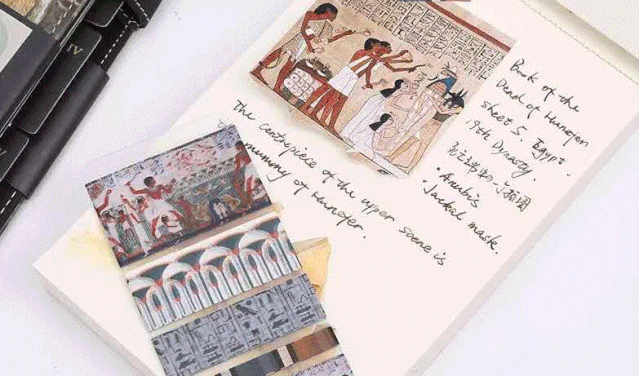 IV
Book of the
Dead of Hunefer
sheet 5. Egypt.
19th Dynasty.
· Anubis
· Jackal mask.
The centrepiece of the upper scene is
mummy of Hunefer.